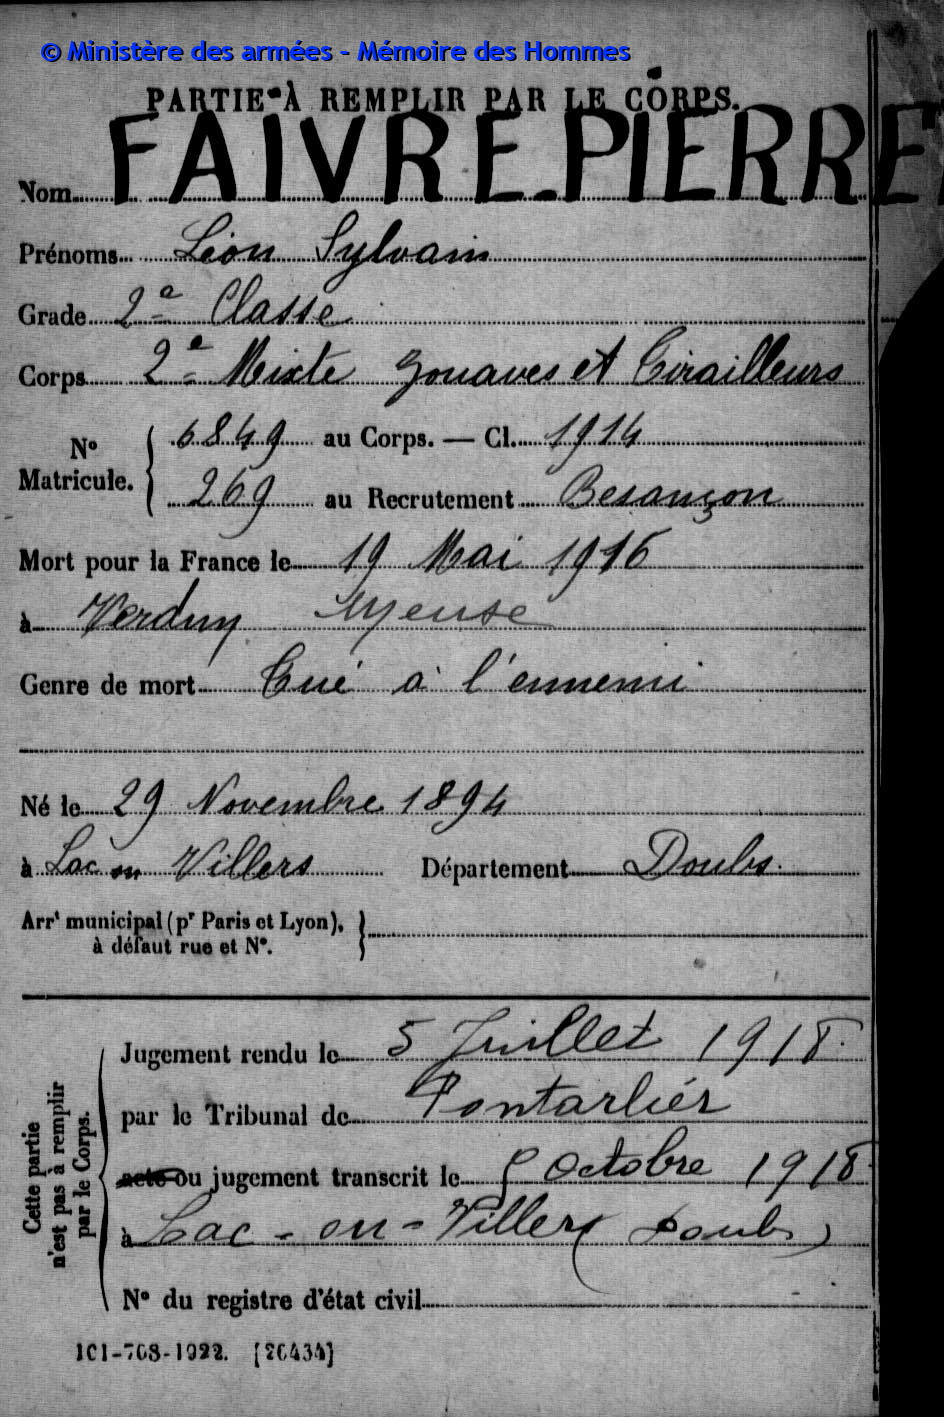 © Ministère des armées - Mémoire des Hommes
PARTIE À REMPLIR PAR LE CORPS.
Nom FAIVRE-PIERRE
Prénoms Léon Sylvain
Grade 2e Classe
Corps 2e Mixte Zouaves et Tirailleurs
No Matricule. { 6849 au Corps. — Cl. 1914
269 au Recrutement Besançon
Mort pour la France le 19 Mai 1916
à Verdun Meuse
Genre de mort Tué à l'ennemi
Né le 29 Novembre 1894
à Lac ou Villers Département Doubs.
Arrt municipal (pr Paris et Lyon), }
à défaut rue et No.
Cette partie n'est pas à remplir par le Corps.
Jugement rendu le 5 Juillet 1918.
par le Tribunal de Pontarlier
acte ou jugement transcrit le 5 Octobre 1918
à Lac-ou-Villers (Doubs)
No du registre d'état civil
101-708-1922. [26434]